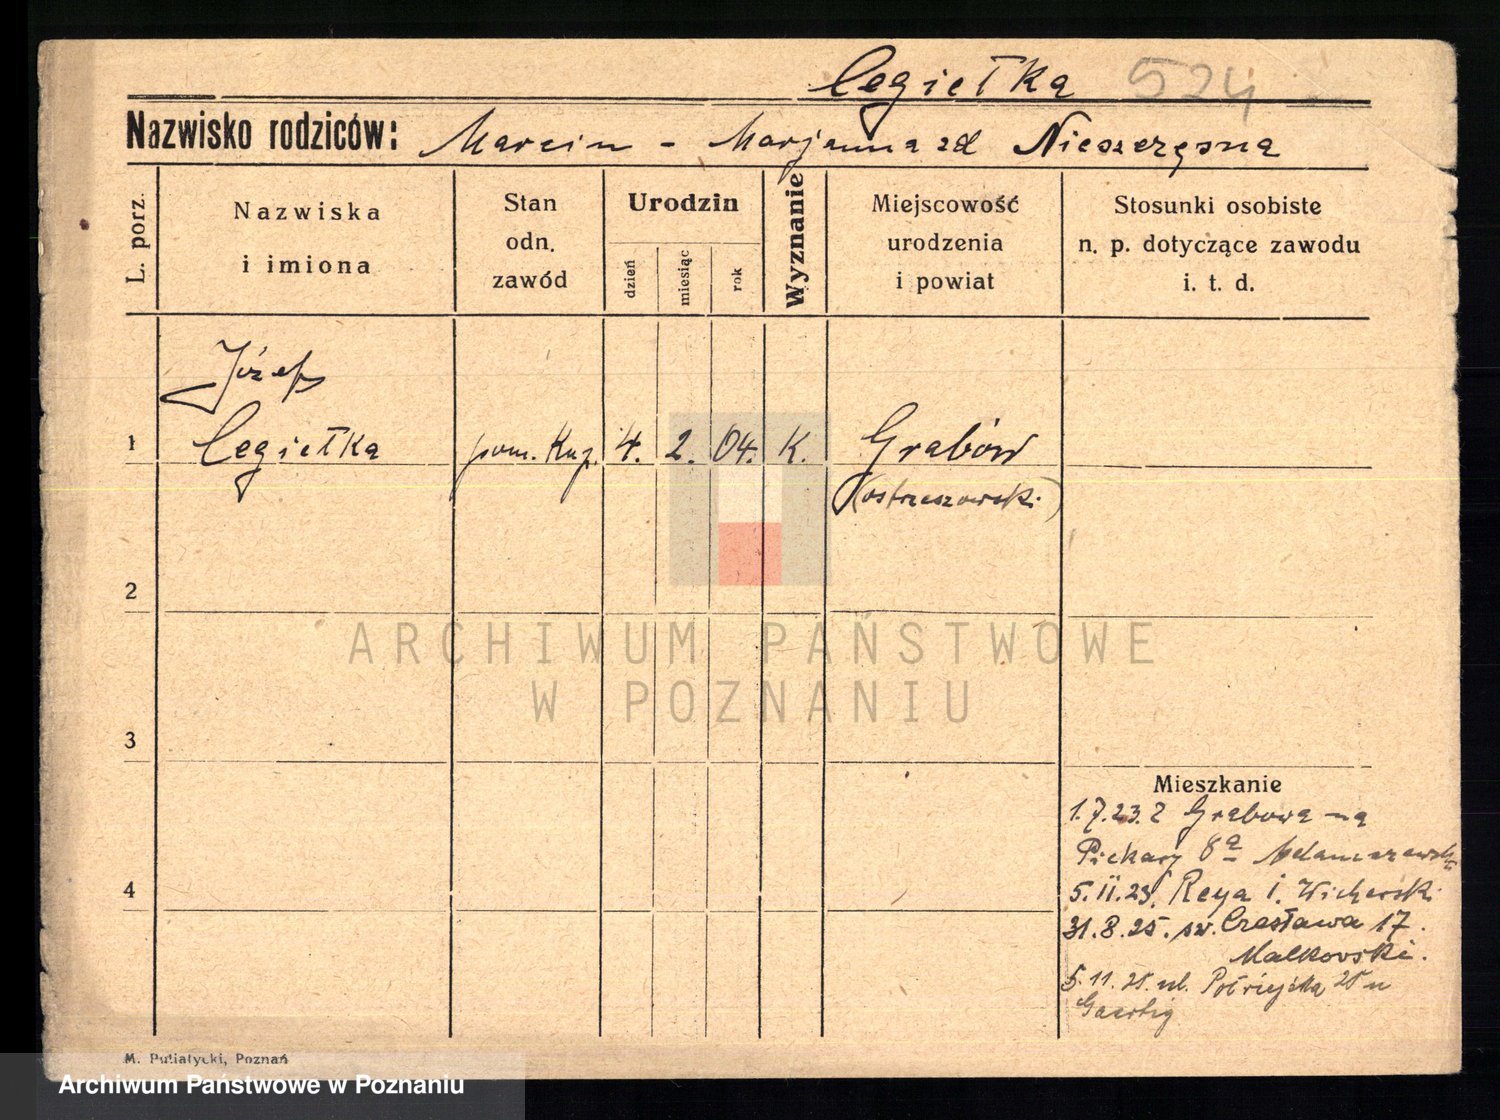 Cegiełka 524
Nazwisko rodziców: Marcin - Marjanna zd Nieszczęsna
L. porz.
Nazwiska
i imiona
Stan
odn.
zawód
Urodzin
dzień
miesiąc
rok
Wyznanie
Miejscowość
urodzenia
i powiat
Stosunki osobiste
n. p. dotyczące zawodu
i. t. d.
Józef
1 Cegiełka pom. Kup. 4. 2. 04. K. Grabów
(ostrzeszowski)
2
ARCHIWUM PAŃSTWOWE
W POZNANIU
3
Mieszkanie
1.7.23. z Grabowa na
Piekary 8a Adamczewski
4
5.11.23. Reya 1. Wicherski
31.8.25. św. Czesława 17.
Malkowski.
5.11.25. ul. Półwiejska 25 u
M. Putiatycki, Poznań
Archiwum Państwowe w Poznaniu